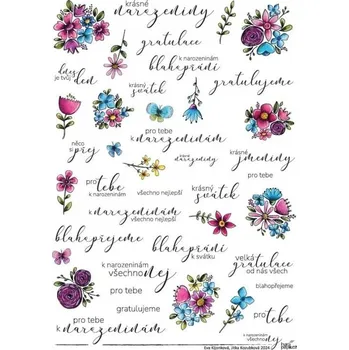 krásné
narozeniny
gratulace
dnes
je tvůj
den
blahopřání
k narozeninám
krásný
svátek
gratulujeme
pro tebe
k narozeninám
něco
si
přej
narozeniny
krásné
jmeniny
pro tebe
pro
tebe
k narozeninám
všechno nejlepší
krásný
svátek
pro
tebe
všechno nejlepší
k narozeninám
blahopřejeme
blahopřání
k svátku
velká
gratulace
od nás všech
k narozeninám
všechno
nej
blahopřejeme
pro tebe
gratulujeme
pro
tebe
k narozeninám
k narozeninám
všechno
nej